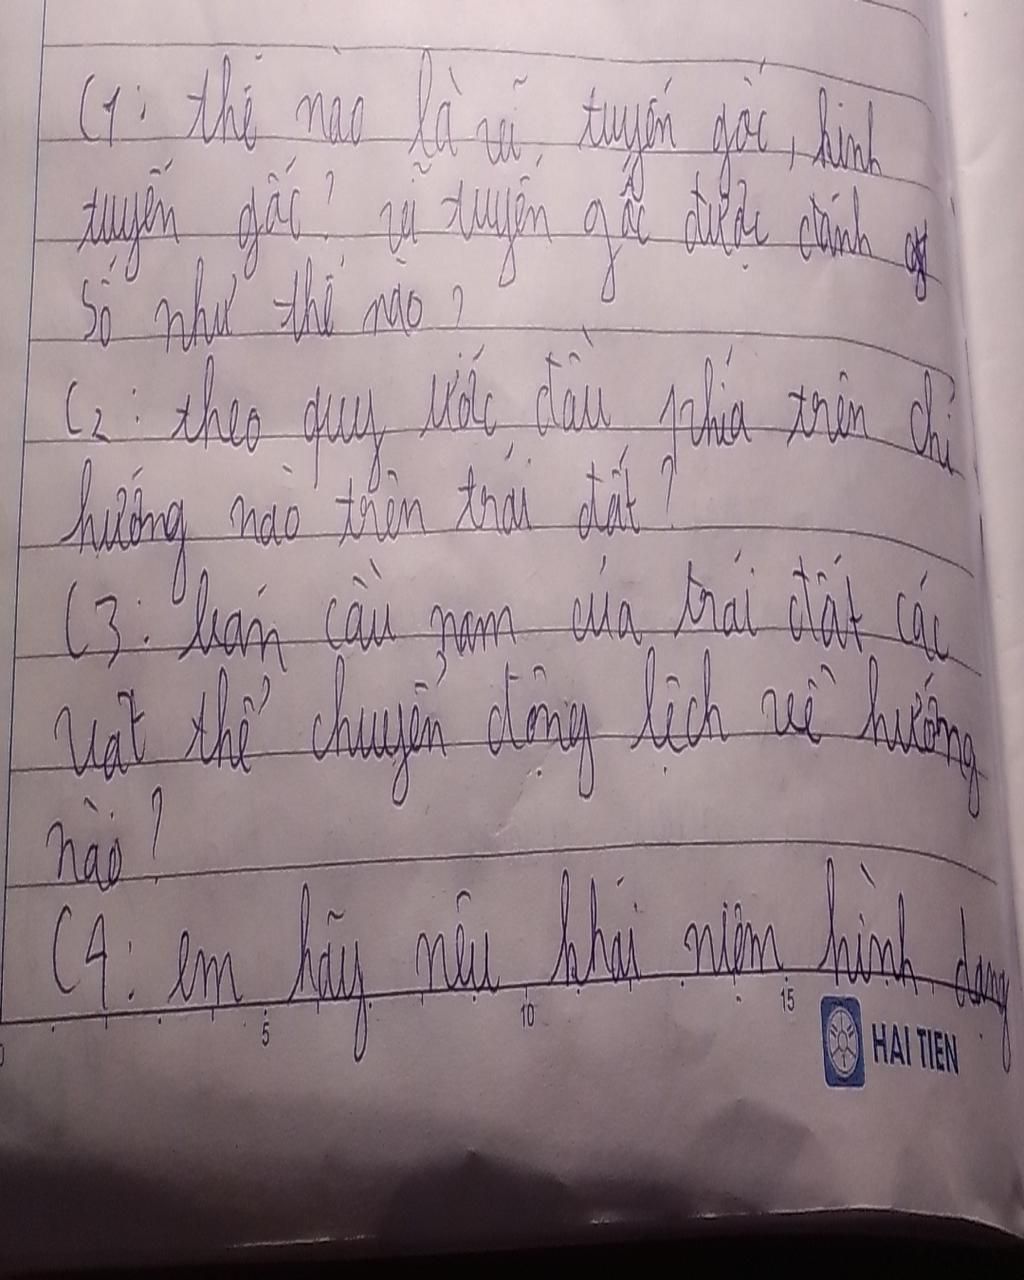 C1: thế nào là vĩ tuyến gốc, kinh
tuyến gốc? vĩ tuyến gốc được đánh
Số như thế nào?
C2: theo quy ước, đầu phía trên chỉ
hướng nào trên trái đất?
C3: bán cầu nam của trái đất các
vật thể chuyển động lệch về hướng
nào?
C4: em hãy nêu khái niệm hình dạng
5 10 15
HAI TIEN